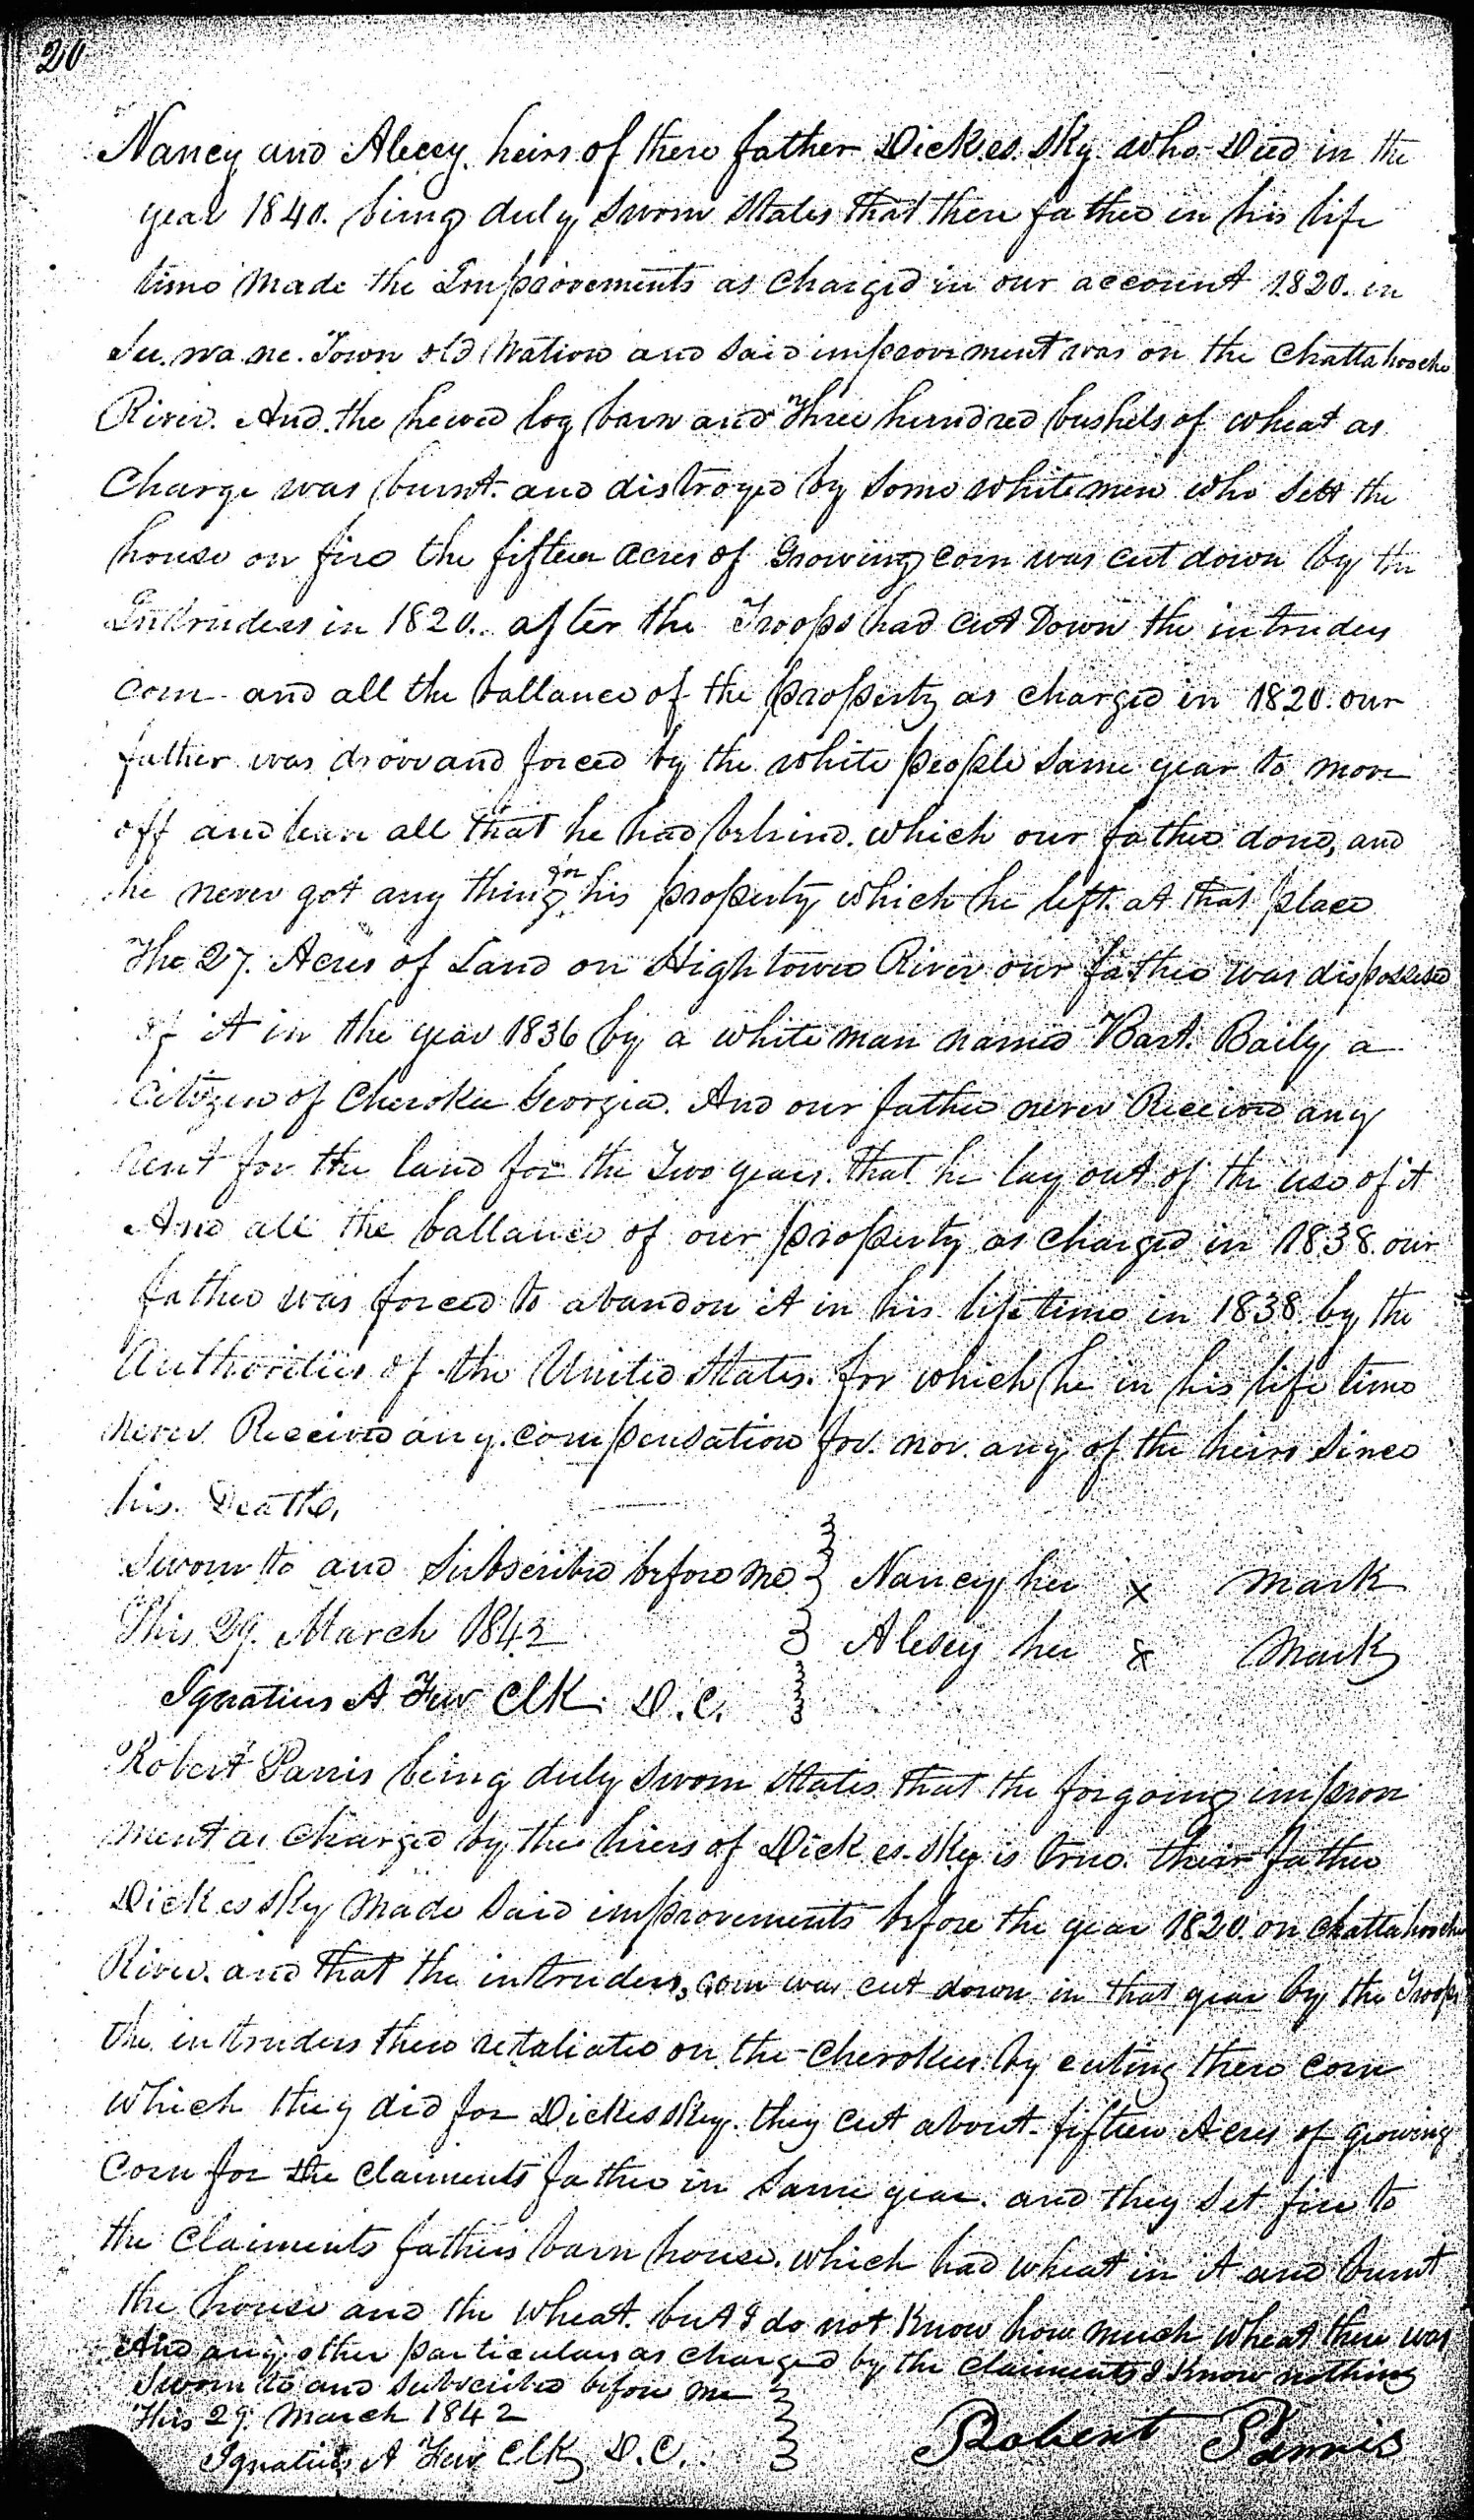 20
Nancy and Alecey. heirs of there father Dick.es.sky. who Died in the
year 1840. being duly sworn states that there father in his life
time made the Improvements as charged in our account 1820. in
Su.wa.ne. Town old Nation and said improovement was on the Chattahooche
River. And the hewed log barn and Three hundred bushels of wheat as
Charge was burnt. and distroyed by some white men who sett the
house on fire the fifteen acres of Growing corn was cut down by the
Intruders in 1820. after the Troops had cut Down the intruders
corn and all the ballance of the property as charged in 1820. our
father was drove and forced by the white people same year to move
off and leave all that he had behind. which our father done, and
he never got any thing in his property which he left at that place
The 27. Acres of Land on Hightower River our father was dispossesed
of it in the year 1836 by a white man named Bart. Baily a
Citizen of Cherokee Georgia. And our father never Received any
Rent for the land for the Two years. that he lay out of the use of it
And all the ballance of our property as charged in 1838. our
father was forced to abandon it in his life time in 1838 by the
Authorities of the United States. for which he in his life time
never Received any compensation for. nor. any of the heirs since
his Death,
Sworn to and Subscribed before me Nancy her x mark
This 29. March 1842 Alesey her x mark
Ignatius A Few Clk. D.C.
Robert Parris being duly sworn states that the forgoing improve
ment as charged by the hiers of Dick.es.sky is true. their father
Dickessky made said improvements before the year 1820. on Chattahoochee
River. and that the intruders, corn was cut down in that year by the Troops
the intruders then retaliated on the Cherokees by cuting there corn
which they did for Dickessky. they cut about fifteen Acres of growing
Corn for the claiments father in same year. and they set fire to
the claiments fathers barn house. which had wheat in it and burnt
the house and the wheat. but I do not know how much wheat there was
And any other particulars as charged by the claiments I know nothing
Sworn to and subscribed before me
This 29. March 1842
Ignatius A Few Clk D.C. Robert Parris